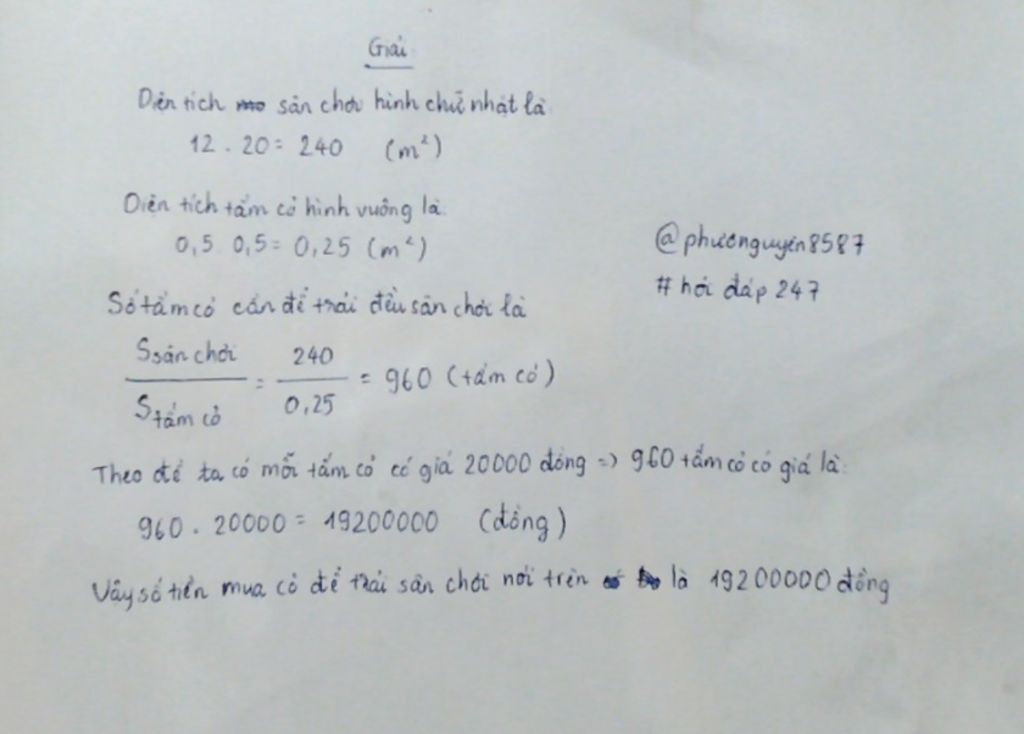 Giải
Diện tích sân chơi hình chữ nhật là:
12 . 20 = 240 (m²)
Diện tích tấm cỏ hình vuông là:
0,5 . 0,5 = 0,25 (m²)
@phươnguyên8587
# hỏi đáp 247
Số tấm cỏ cần để trải đều sân chơi là
S sân chơi / S tấm cỏ = 240 / 0,25 = 960 (tấm cỏ)
Theo đề ta có mỗi tấm cỏ có giá 20000 đồng => 960 tấm cỏ có giá là:
960 . 20000 = 19200000 (đồng)
Vậy số tiền mua cỏ để trải sân chơi nói trên là 19200000 đồng